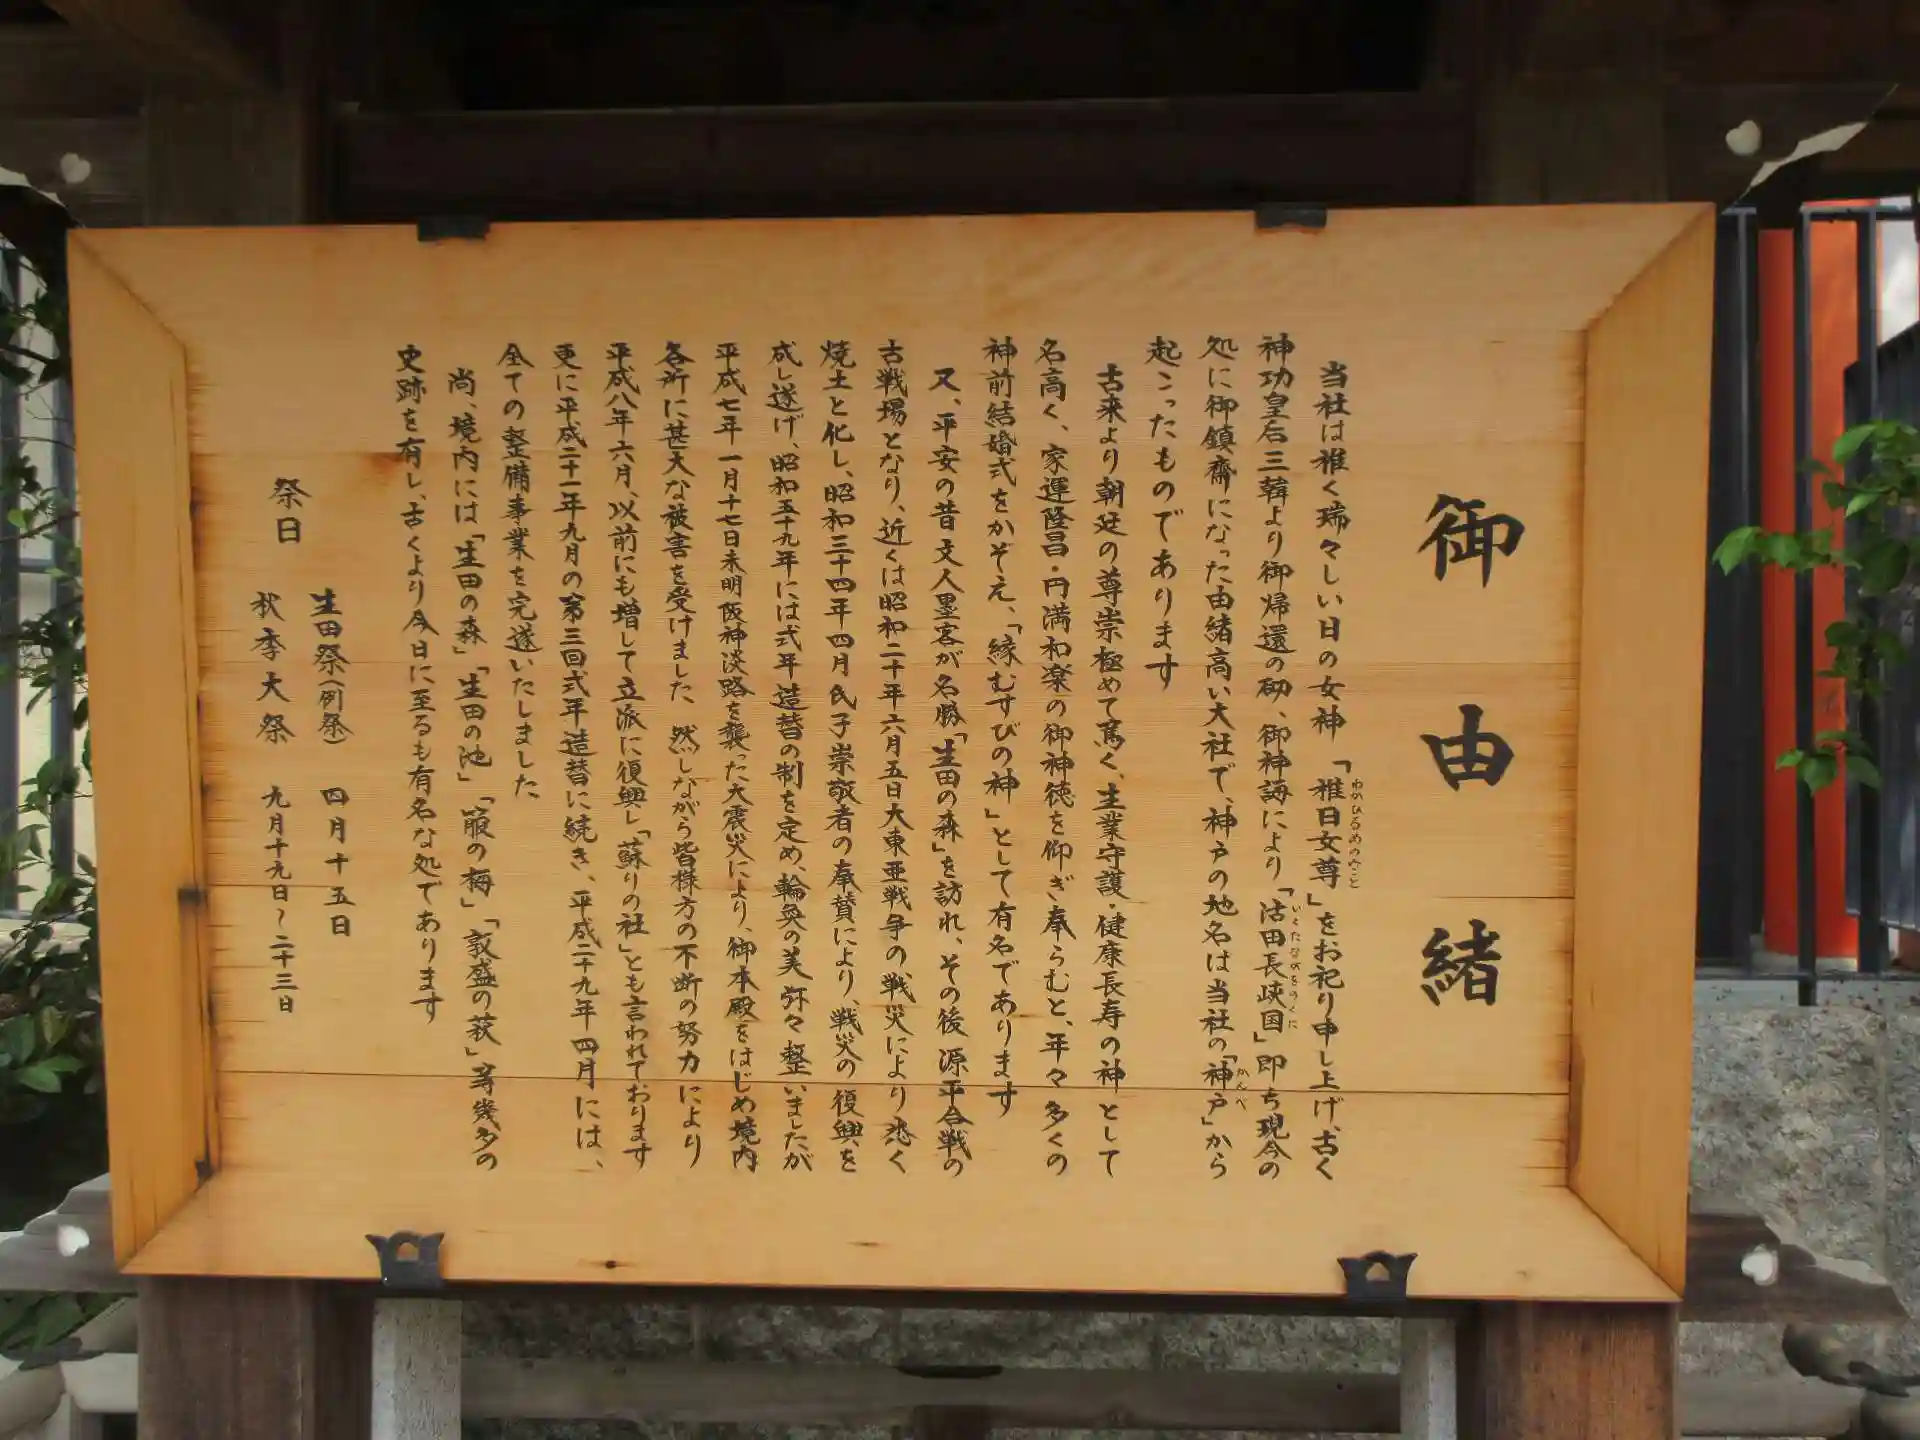 御由緒
当社は稚く瑞々しい日の女神「稚日女尊」をお祀り申し上げ、古く
わかひるめのみこと
神功皇后三韓より御帰還の砌、御神誨により、「活田長峡国」即ち現今の
いくたながをのくに
処に御鎮齋になった由緒高い大社で、神戸の地名は当社の「神戸」から
かんべ
起こったものであります
古来より朝廷の尊崇極めて篤く、生業守護・健康長寿の神として
名高く、家運隆昌・円満和楽の御神徳を仰ぎ奉らむと、年々多くの
神前結婚式をかぞえ、「縁むすびの神」として有名であります
又、平安の昔文人墨客が名勝「生田の森」を訪れ、その後源平合戦の
古戦場となり、近くは昭和二十年六月五日大東亜戦争の戦災により悉く
焼土と化し、昭和三十四年四月氏子崇敬者の奉賛により、戦災の復興を
成し遂げ、昭和五十九年には式年造替の制を定め、輪奐の美弥々整いましたが
平成七年一月十七日未明阪神淡路を襲った大震災により、御本殿をはじめ境内
各所に甚大な被害を受けました 然しながら皆様方の不断の努力により
平成八年六月、以前にも増して立派に復興し「蘇りの社」とも言われております
更に平成二十一年九月の第三回式年造替に続き、平成二十九年四月には、
全ての整備事業を完遂いたしました
尚、境内には「生田の森」「生田の池」「箙の梅」「敦盛の萩」等幾多の
史跡を有し、古くより今日に至るも有名な処であります
祭日 生田祭(例祭) 四月十五日
秋季大祭 九月十九日〜二十三日